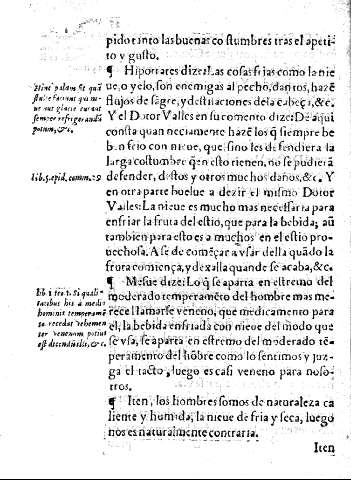 pido tanto las buenas costumbres tras el apeti-
to y gusto.
¶ Hipocrates dize: Las cosas frias como la nie
ue, o yelo, son enemigas al pecho, dañan, hazẽ
flujos de sãgre, y destilaciones de la cabeça, &c.
Y el Dotor Valles en su comento dize: De aqui
consta quan neciamente hazẽ los q̃ siempre be
ben frio con nieue, que si no les defendiera la
larga costumbre q̃ en esto tienen, no se pudierã
defender, destos y otros muchos daños, &c. Y
en otra parte buelue a dezir el mismo Dotor
Valles: La nieue es mucho mas necessaria para
enfriar la fruta del estio, que para la bebida; aũ
tambien para esto es a muchos en el estio pro-
uechosa. A se de comẽçar a vsar della quãdo la
fruta comiença, y dexalla quando se acaba, &c.
¶ Mesue dize: Lo q̃ se aparta en estremo del
moderado temperamẽto del hombre mas me-
rece llamarse veneno, que medicamento para
el, la bebida enfriada con nieue del modo que
se vsa, se aparta en estremo del moderado tẽ-
peramento del hõbre como lo sentimos y juz-
ga el tacto, luego es casi veneno para noso-
tros.
¶ Iten, los hombres somos de naturaleza ca
liente y humida, la nieue de fria y seca, luego
nos es naturalmente contraria.
Iten
lib. 5. epid. comm. 29
lib. 1.
hominis temperamẽ
to recedat vehemen
ter venenum potius
est dicendũ, &c.